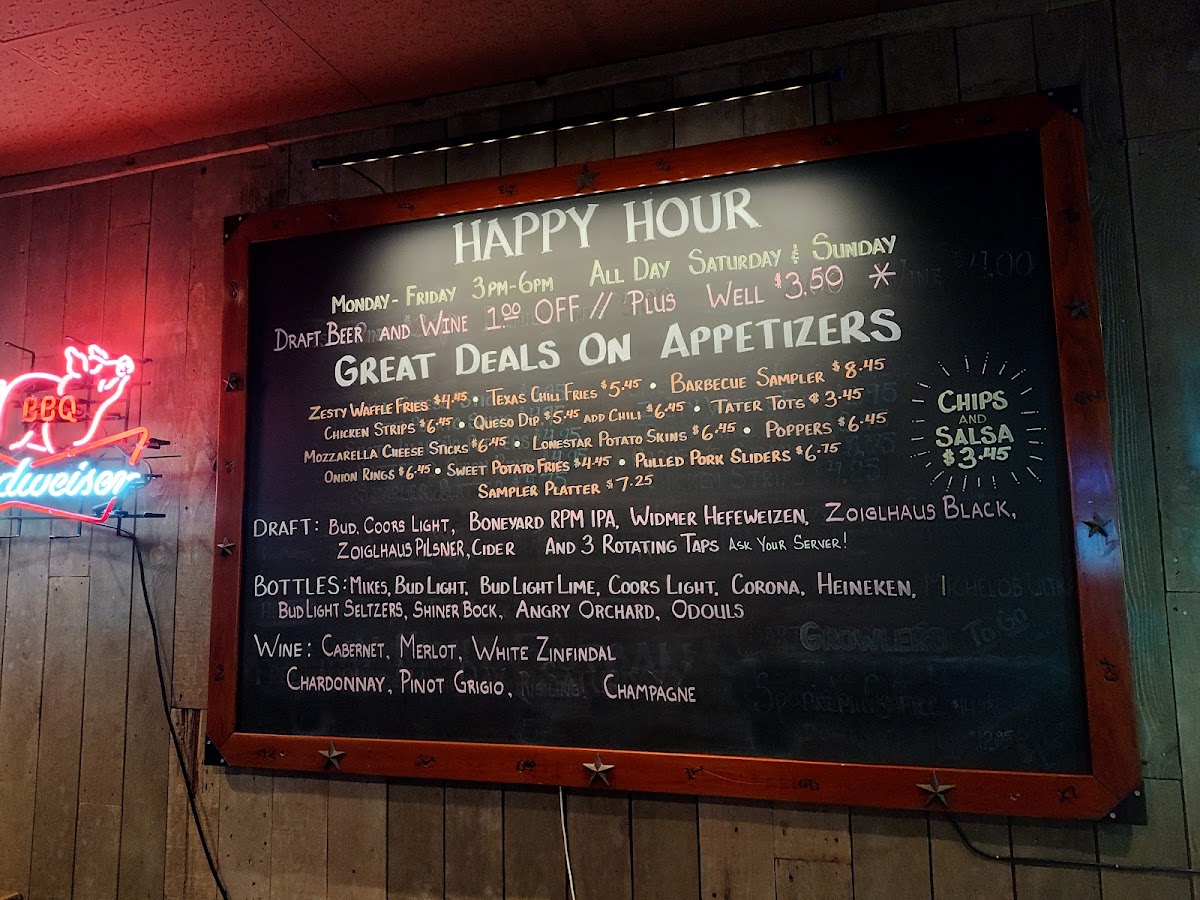 HAPPY HOUR
MONDAY - FRIDAY 3PM-6PM ALL DAY SATURDAY & SUNDAY
DRAFT BEER AND WINE 1.00 OFF // PLUS WELL $3.50 *
GREAT DEALS ON APPETIZERS
ZESTY WAFFLE FRIES $4.45 • TEXAS CHILI FRIES $5.45 • BARBECUE SAMPLER $8.45
CHICKEN STRIPS $6.45 • QUESO DIP $5.45 ADD CHILI $6.45 • TATER TOTS $3.45
MOZZARELLA CHEESE STICKS $6.45 • LONESTAR POTATO SKINS $6.45 • POPPERS $6.45
ONION RINGS $6.45 • SWEET POTATO FRIES $4.45 • PULLED PORK SLIDERS $6.75
SAMPLER PLATTER $7.25
CHIPS
AND
SALSA
$3.45
DRAFT: BUD, COORS LIGHT, BONEYARD RPM IPA, WIDMER HEFEWEIZEN, ZOIGLHAUS BLACK,
ZOIGLHAUS PILSNER, CIDER AND 3 ROTATING TAPS ASK YOUR SERVER!
BOTTLES: MIKES, BUD LIGHT, BUD LIGHT LIME, COORS LIGHT, CORONA, HEINEKEN,
BUD LIGHT SELTZERS, SHINER BOCK, ANGRY ORCHARD, ODOULS
GROWLERS TO GO
WINE: CABERNET, MERLOT, WHITE ZINFINDAL
CHARDONNAY, PINOT GRIGIO, CHAMPAGNE
BBQ
dweiser